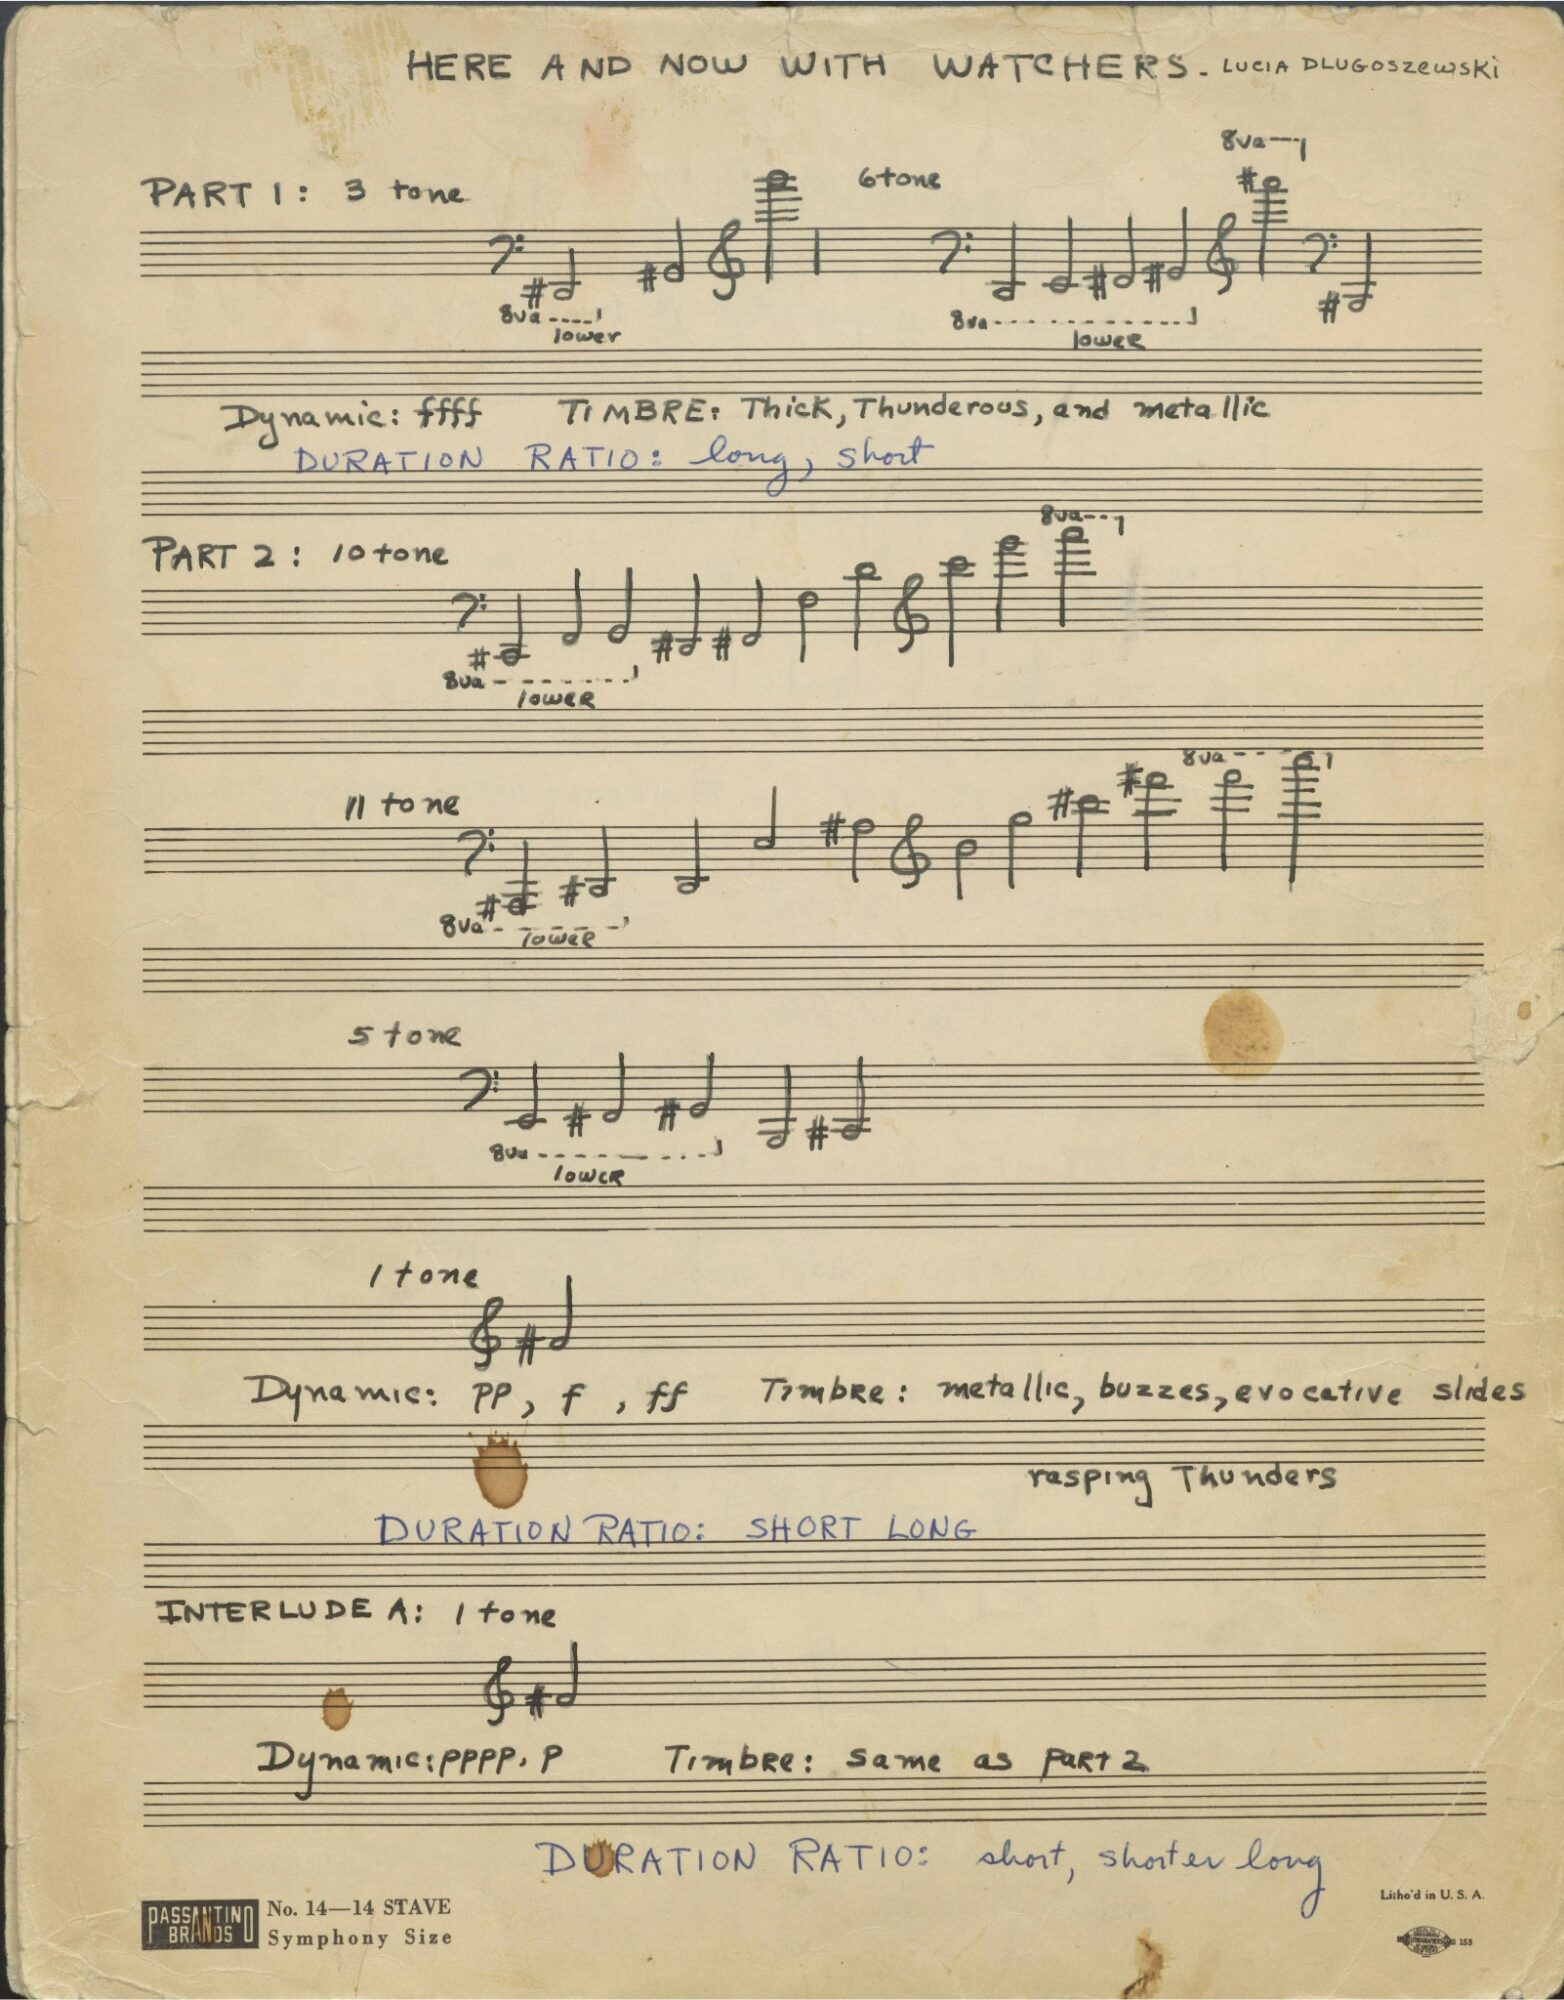 HERE AND NOW WITH WATCHERS. LUCIA DLUGOSZEWSKI
8va
PART 1: 3 tone 6 tone
8va lower 8va lower
Dynamic: ffff TIMBRE: Thick, Thunderous, and metallic
DURATION RATIO: long, short
8va
PART 2: 10 tone
8va lower
8va
11 tone
8va lower
5 tone
8va lower
1 tone
Dynamic: pp, f, ff Timbre: metallic, buzzes, evocative slides
rasping Thunders
DURATION RATIO: SHORT LONG
INTERLUDE A: 1 tone
Dynamic: pppp. p Timbre: same as part 2
DURATION RATIO: short, shorter long
PASSANTINO BRANDS
No. 14—14 STAVE
Symphony Size
Litho'd in U. S. A.
155